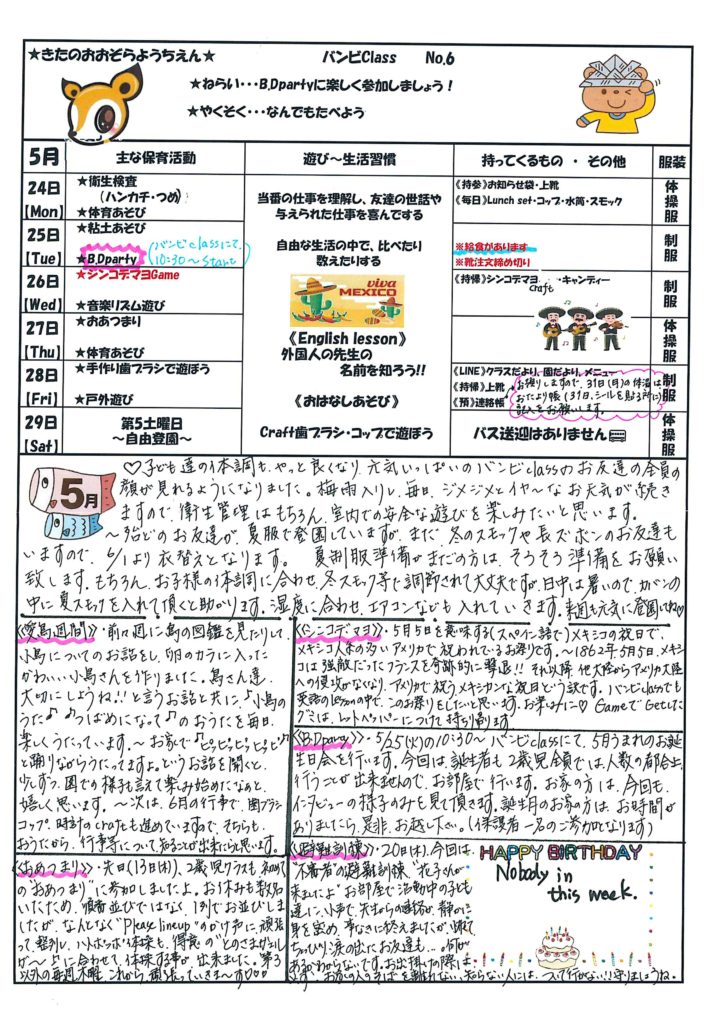 ★きたのおおぞらようちえん★ バンビClass No.6
★ねらい・・・B.Dpartyに楽しく参加しましょう！
★やくそく・・・なんでもたべよう
5月 主な保育活動 遊び～生活習慣 持ってくるもの ・ その他 服装
24日 [Mon]
★衛生検査
(ハンカチ・つめ)
★体育あそび
当番の仕事を理解し、友達の世話や
与えられた仕事を喜んでする
《持参》お知らせ袋・上靴
《毎日》Lunch set・コップ・水筒・スモック
体操服
25日 [Tue]
★粘土あそび
★B.Dparty (バンビclassにて、10:30～start)
自由な生活の中で、比べたり
数えたりする
※給食があります
※靴注文締め切り
制服
26日 [Wed]
★シンコデマヨGame
★音楽リズム遊び
viva MEXICO
《持帰》シンコデマヨ craft・キャンディー
制服
27日 [Thu]
★おあつまり
★体育あそび
《English lesson》
外国人の先生の
名前を知ろう!!
体操服
28日 [Fri]
★手作り歯ブラシで遊ぼう
★戸外遊び
《おはなしあそび》
《LINE》クラスだより、園だより、メニュー
《持帰》上靴
《預》連絡帳
お預りしますので、31日(月)の体温は
おたより帳(31日、シールを貼る所に)
記入をお願いします。
制服
29日 [Sat]
第5土曜日
～自由登園～
Craft歯ブラシ・コップで遊ぼう
バス送迎はありません
体操服
5月
♡子ども達の体調も、やっと良くなり、元気いっぱいのバンビclassのお友達の全員の
顔が見れるようになりました。梅雨入りし、毎日、ジメジメとイヤ～なお天気が続き
ますので、衛生管理はもちろん、室内での安全な遊びを楽しみたいと思います。
～3分どのお友達が、夏服で登園していますが、まだ、冬のスモックや長ズボンのお友達も
いますので、6/1より衣替えとなります。 夏制服準備がまだの方は、そろそろ準備をお願い
致します。もちろん、お子様の体調に合わせ、冬スモック等で調節されて大丈夫ですが、日中は暑いので、カバンの
中に夏スモックを入れて頂くと助かります。湿度に合わせ、エアコンなども入れていきます。来週も元気に登園してね♡
《愛鳥週間》・前々週に鳥の図鑑を見たりして、
小鳥についてのお話をし、卵のカラに入った
かわいい小鳥さんを作りました。鳥さん達
大切にしようね!!と言うお話と共に、♪小鳥の
うた♪♪つばめになって♪のおうたを毎日、
楽しくうたっています。～お家で♪ピピピピピ♪
と踊りながらうたってますよ。というお話を聞くと、
少しずつ、園での様子も言えて楽しみ始めたなぁと、
嬉しく思います。～次は、6月の行事で、歯ブラシ
コップ、時計のcraftも進めていますので、そちらも、
おうたから、行事等について知ることが出来たらと思います。
《シンコデマヨ》・5月5日を意味する(スペイン語で)メキシコの祝日で、
メキシコ人系の多いアメリカで祝われているお祭りです。～1862年5月5日、メキシ
コは強敵だったフランスを奇跡的に撃退!! それ以降、他大陸からアメリカ大陸
への侵攻がなくなり、アメリカで祝うメキシカンな祝日という訳です。バンビclassでも
英語のlessonの中で、このお祭りをしたいと思います。お楽しみに♡ GameでGetした
グミは、レットペーパーにつけて持ち帰ります
《B.Dparty》・5/25(火)の10:30～バンビclassにて、5月うまれのお誕
生日会を行います。今回は、誕生者も2歳児全員では、人数の都合上、
行うことが出来ませんので、お部屋で行います。お家の方は、今回も、
インタビューの様子のみも見て頂きます。誕生月のお家の方は、お時間が
ありましたら、是非、お越し下さい。(保護者一名のご参加となります)
《おあつまり》・先日(13日(木))、2歳児クラスも初めて
の"おあつまり"に参加しましたよ。お休みも数名
いたため、順番並びではなく、1列でお並びしま
したが、なんとなく"Please line up"のかけ声に頑張
って整列し、ハトポッポ体操も、得意の"とのさまガエル
が～♪"に合わせて、体操する事が、出来ました。第3
以外の毎週木曜、これから、頑張っていきま～す♡♡♡
《避難訓練》・20日(木)、今回は、
"不審者"の避難訓練"花子くんが
来ましたよ"お部屋で活動中の子ども
達に、小声で、先生からの連絡が、静かに
身を窓め、事なきに終えましたが、
ちょっぴり涙の出たお友達も…。何が
あるかわからないです。お出掛けの際は、
お家の人のそばを離れない、知らない人には、ついて行かない!!守りましょうね。
HAPPY BIRTHDAY
Nobody in
this week.